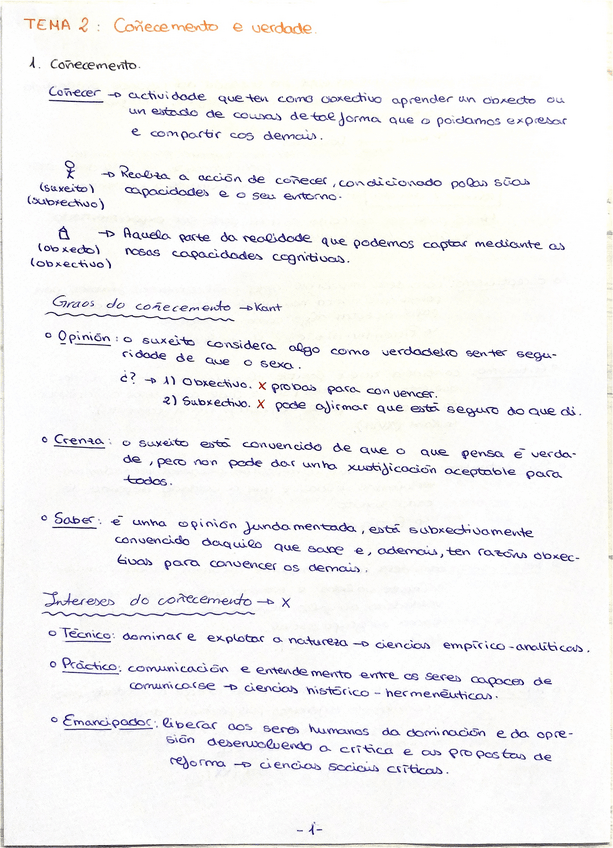 TEMA 2: Coñecemento e verdade.
1. Coñecemento.
Coñecer → actividade que ten como obxectivo aprender un obxecto ou
un estado de cousas de tal forma que o poidamos expresar
e compartir cos demais.
→ Realiza a acción de coñecer, condicionado polas súas
(suxeito) capacidades e o seu entorno.
(subxectivo)
→ Aquela parte da realidade que podemos captar mediante as
(obxecto) nosas capacidades cognitivas.
(obxectivo)
Graos do coñecemento → Kant
Opinión: o suxeito considera algo como verdadeiro sen ter segu-
ridade de que o sexa.
¿? → 1) Obxectivo. X probas para convencer.
2) Subxectivo. X pode afirmar que está seguro do que di.
Crenza: o suxeito está convencido de que o que pensa é verda-
de, pero non pode dar unha xustificación aceptable para
todos.
Saber: é unha opinión fundamentada, está subxectivamente
convencido daquilo que sabe e, ademais, ten razóns obxec-
tivas para convencer os demais.
Intereses do coñecemento → X
Técnico: dominar e explotar a natureza → ciencias empírico-analíticas.
Práctico: comunicación e entendemento entre os seres capaces de
comunicarse → ciencias histórico-hermenéuticas.
Emancipador: liberar aos seres humanos da dominación e da opre-
sión desenvolvendo a crítica e as propostas de
reforma → ciencias sociais críticas.
-1-